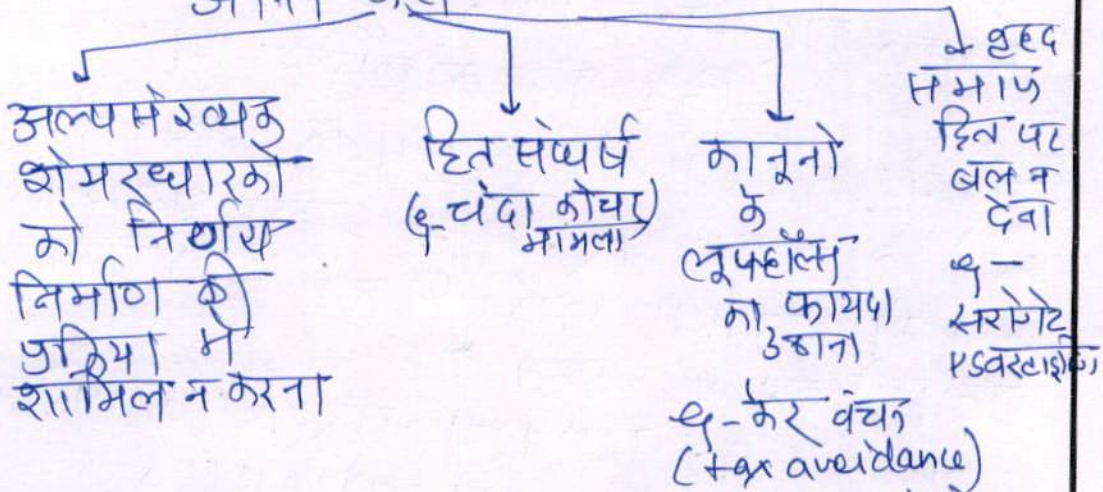 अल्पसंख्यक
शेयरधारकों
को निर्णय
निर्माण की
प्रक्रिया में
शामिल न करना
हित संघर्ष
(eg- चंदा कोचर
मामला)
कानूनों
के
लूपहोल्स
का फायदा
उठाना
eg- कर वंचन
(tax avoidance)
वृहद
समाज
हित पर
बल न
देना
eg-
सरोगेट
एडवरटाइजिंग